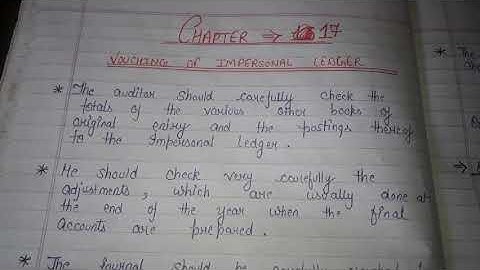 CHAPTER → 17
VOUCHING OF IMPERSONAL LEDGER
* The auditor should carefully check the
totals of the various other books of
original entry and the postings thereof
to the Impersonal Ledger.
* He should check very carefully the
adjustments, which are usually done at
the end of the year when the final
accounts are prepared.
* The Journal should be carefully
* The
⇒